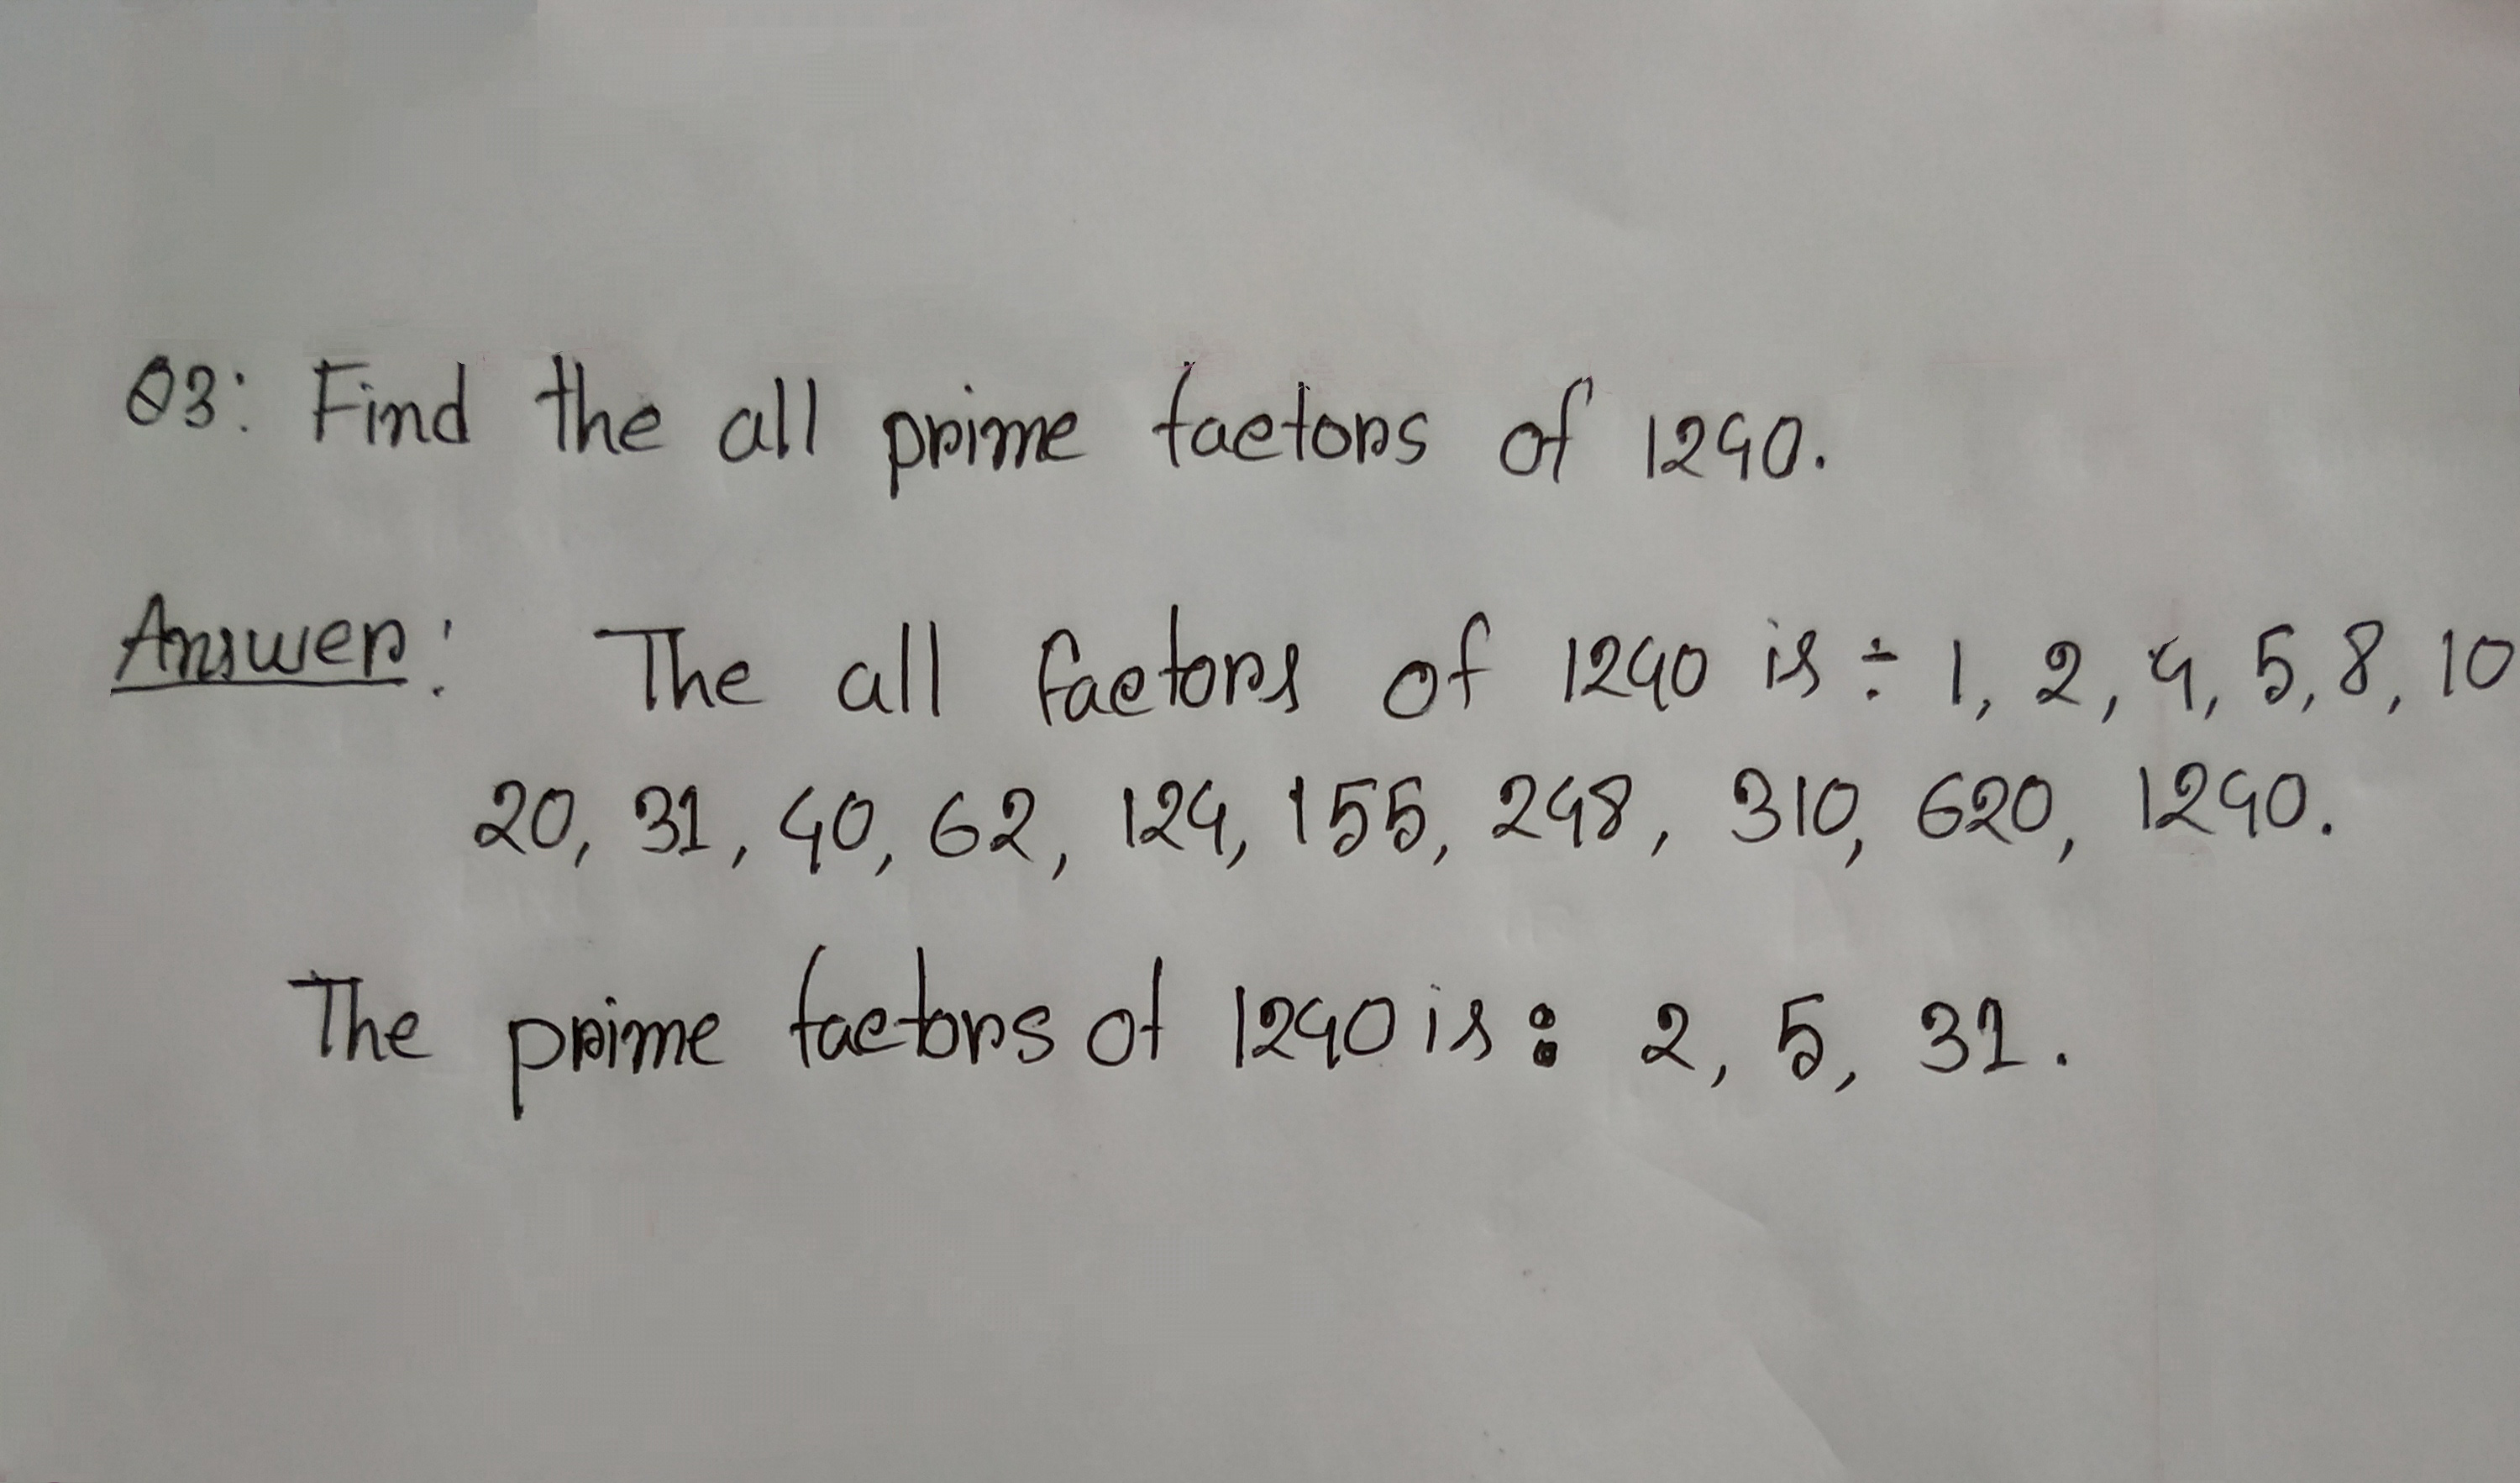 Q3: Find the all prime factors of 1240.
Answer: The all factors of 1240 is ÷ 1, 2, 4, 5, 8, 10
20, 31, 40, 62, 124, 155, 248, 310, 620, 1240.
The prime factors of 1240 is: 2, 5, 31.